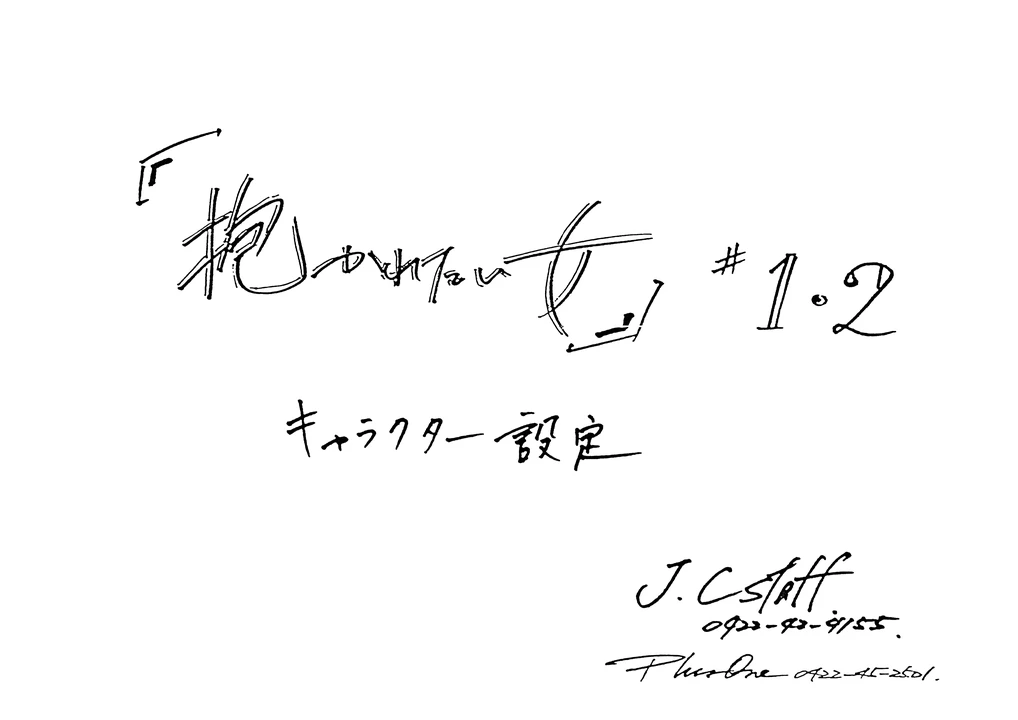 『抱かれたい女』 #1・2
キャラクター設定
J.C Staff
0422-43-4155.
PlusOne 0422-45-2501.